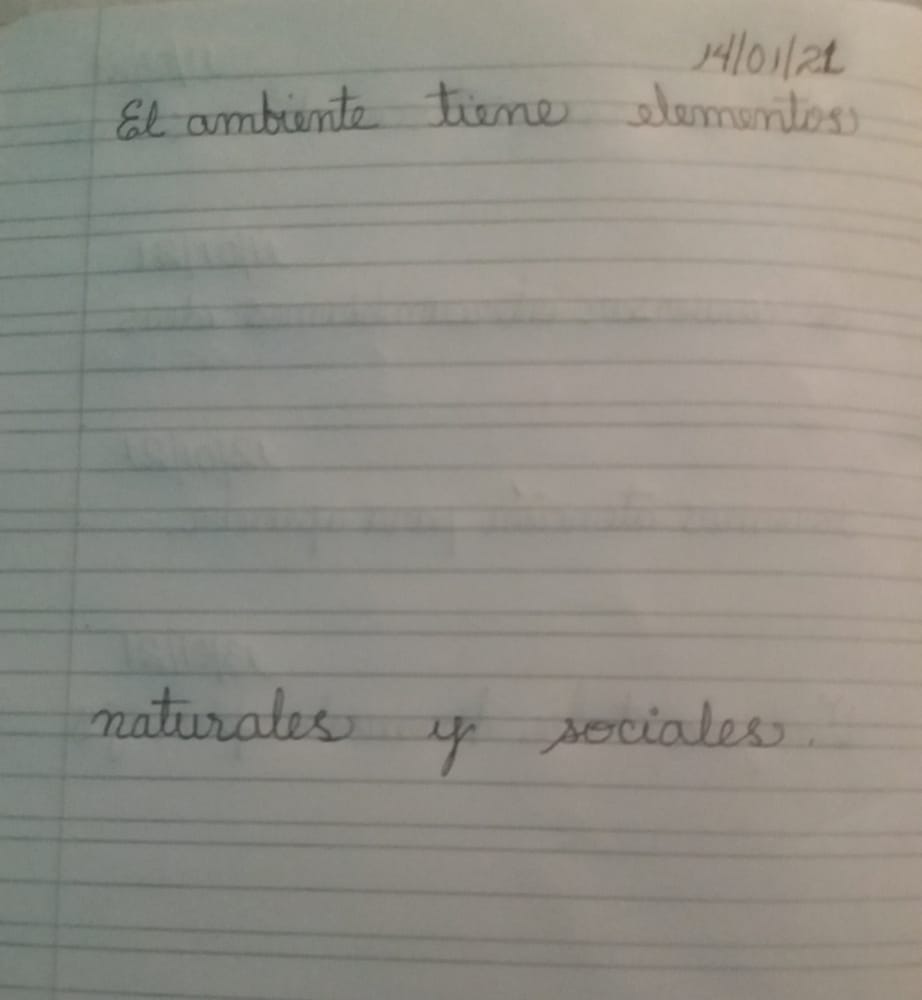 14/01/21
El ambiente tiene elementos
naturales y sociales.